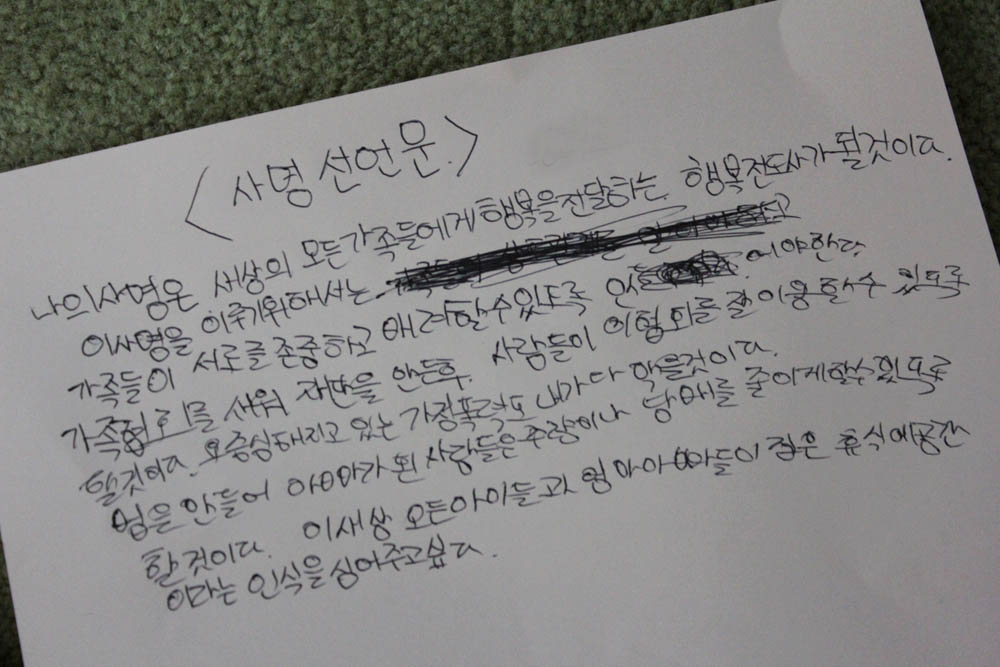 <사명 선언문.>
나의사명은 세상의 모든가족들에게 행복을전달하는 행복전도사가 될것이다.
이사명을 이루기위해서는
가족들이 서로를 존중하고 배려할수있도록 만들 어야한다.
가족협회를 세워 재판을 만든후. 사람들이 이협회를 잘 이용할수 있도록
할것이다. 요즘심해지고 있는 가정폭력도 내가 다 막을것이다.
법을 만들어 아빠가 된 사람들은 주량이나 담배를 줄이게할수있도록
할것이다. 이새상 모든아이들과 엄마아빠들이 집은 휴식에공간
이라는 인식을 심어주고싶다.